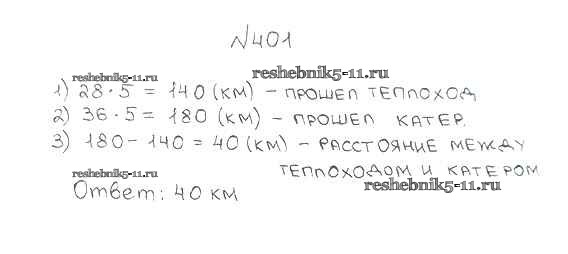 №401
reshebnik5-11.ru
reshebnik5-11.ru
1) 28·5 = 140 (км) - прошел теплоход
2) 36·5 = 180 (км) - прошел катер.
3) 180-140 = 40 (км) - расстояние между
теплоходом и катером
reshebnik5-11.ru
reshebnik5-11.ru
Ответ: 40 км